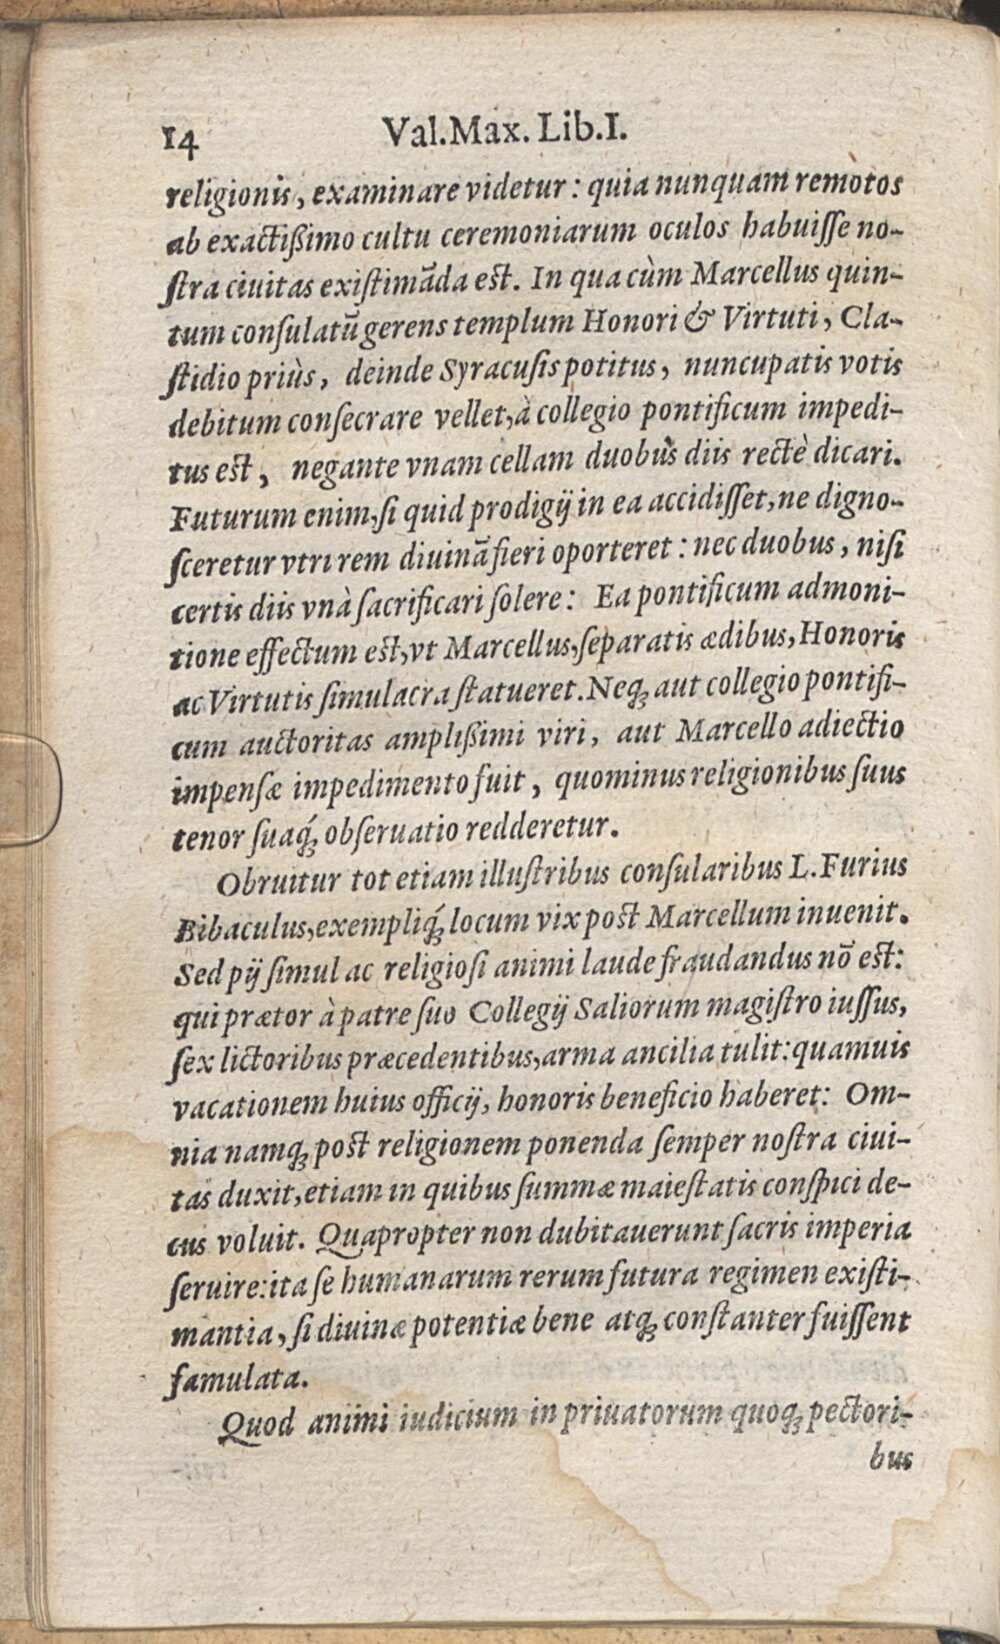 14 Val. Max. Lib. I.
religionis, examinare videtur: quia nunquam remotos
ab exactißimo cultu ceremoniarum oculos habuiſſe no-
ſtra ciuitas exiſtimãda est. In qua cùm Marcellus quin-
tum conſulatũ gerens templum Honori & Virtuti, Cla-
ſtidio priùs, deinde Syracuſis potitus, nuncupatis votis
debitum conſecrare vellet, à collegio pontificum impedi-
tus est, negante vnam cellam duobus diis rectè dicari.
Futurum enim, ſi quid prodigij in ea accidiſſet, ne digno-
ſceretur vtri rem diuinã fieri oporteret: nec duobus, niſi
certis diis vnà ſacrificari ſolere: Ea pontificum admoni-
tione effectum est, vt Marcellus, ſeparatis ædibus, Honoris
ac Virtutis ſimulacra ſtatueret. Neq; aut collegio pontifi-
cum auctoritas amplißimi viri, aut Marcello adiectio
impenſæ impedimento fuit, quominus religionibus ſuus
tenor ſuaq́; obſeruatio redderetur.
Obruitur tot etiam illuſtribus conſularibus L. Furius
Bibaculus, exempliq́; locum vix post Marcellum inuenit.
Sed pij ſimul ac religioſi animi laude fraudandus nõ est:
qui prætor à patre ſuo Collegij Saliorum magiſtro iuſſus,
ſex lictoribus præcedentibus, arma ancilia tulit: quamuis
vacationem huius officij, honoris beneficio haberet: Om-
nia namq; post religionem ponenda ſemper noſtra ciui-
tas duxit, etiam in quibus ſummæ maieſtatis conſpici de-
cus voluit. Quapropter non dubitauerunt ſacris imperia
ſeruire: ita ſe humanarum rerum futura regimen exiſti-
mantia, ſi diuinæ potentiæ bene atq; conſtanter fuiſſent
famulata.
Quod animi iudicium in priuatorum quoq; pectori-
bus